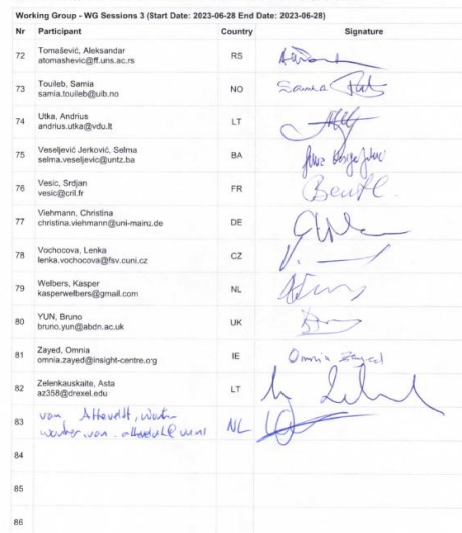 Working Group - WG Sessions 3 (Start Date: 2023-06-28 End Date: 2023-06-28)
Nr Participant Country Signature
72 Tomašević, Aleksandar RS
atomashevic@ff.uns.ac.rs
73 Touileb, Samia NO Samia
samia.touileb@uib.no
74 Utka, Andrius LT
andrius.utka@vdu.lt
75 Veseljević Jerković, Selma BA
selma.veseljevic@untz.ba
76 Vesic, Srdjan FR
vesic@cril.fr
77 Viehmann, Christina DE
christina.viehmann@uni-mainz.de
78 Vochocova, Lenka CZ
lenka.vochocova@fsv.cuni.cz
79 Welbers, Kasper NL
kasperwelbers@gmail.com
80 YUN, Bruno UK
bruno.yun@abdn.ac.uk
81 Zayed, Omnia IE Omnia Zayed
omnia.zayed@insight-centre.org
82 Zelenkauskaite, Asta LT
az358@drexel.edu
83 van Atteveldt, NL
84
85
86